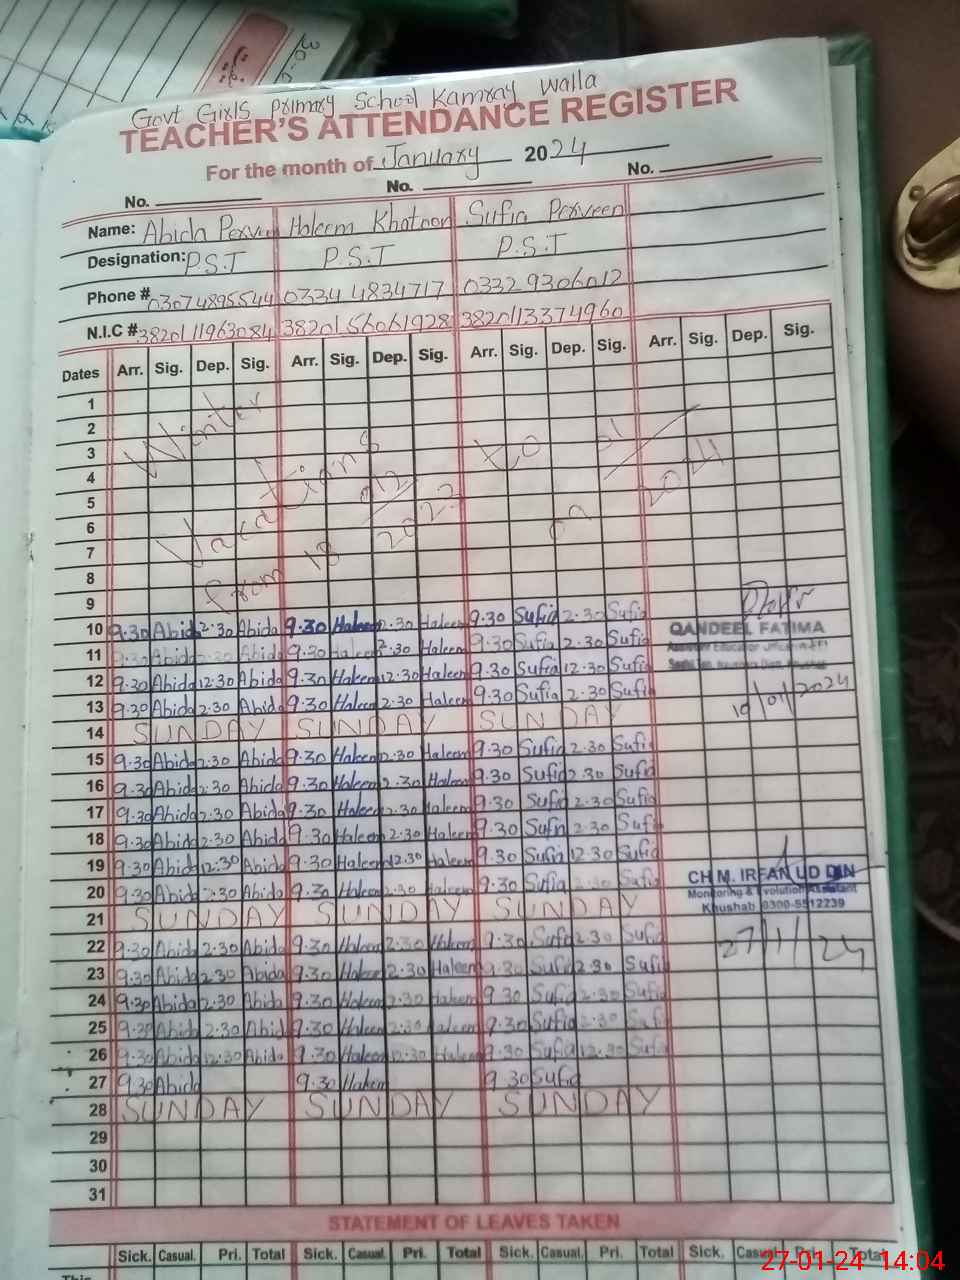 Govt Girls Primary School Kamray Walla
TEACHER'S ATTENDANCE REGISTER
For the month of January 2024
No. No. No.
Name: Abida Perveen Haleem Khatoon Sufia Perveen
Designation: P.S.T P.S.T P.S.T
Phone # 03074895544 0334 4834717 0332 9306012
N.I.C # 38201 11963084 38201 56061928 38201 13374960
Dates Arr. Sig. Dep. Sig. Arr. Sig. Dep. Sig. Arr. Sig. Dep. Sig. Arr. Sig. Dep. Sig.
1
2
3
4
5
6
7
8
9
Winter Vacations
from 18 12/2023 to 09 01/2024
10 9.30 Abida 2.30 Abida 9.30 Haleem 2.30 Haleem 9.30 Sufia 2.30 Sufia
QANDEEL FATIMA
11 9.30 Abida 2.30 Abida 9.30 Haleem 2.30 Haleem 9.30 Sufia 2.30 Sufia
12 9.30 Abida 12.30 Abida 9.30 Haleem 12.30 Haleem 9.30 Sufia 12.30 Sufia
13 9.30 Abida 2.30 Abida 9.30 Haleem 2.30 Haleem 9.30 Sufia 2.30 Sufia
10/01/2024
14 SUNDAY SUNDAY SUNDAY
15 9.30 Abida 2.30 Abida 9.30 Haleem 2.30 Haleem 9.30 Sufia 2.30 Sufia
16 9.30 Abida 2.30 Abida 9.30 Haleem 2.30 Haleem 9.30 Sufia 2.30 Sufia
17 9.30 Abida 2.30 Abida 9.30 Haleem 2.30 Haleem 9.30 Sufia 2.30 Sufia
18 9.30 Abida 2.30 Abida 9.30 Haleem 2.30 Haleem 9.30 Sufia 2.30 Sufia
19 9.30 Abida 12.30 Abida 9.30 Haleem 12.30 Haleem 9.30 Sufia 12.30 Sufia
CH M. IRFAN UD DIN
20 9.30 Abida 2.30 Abida 9.30 Haleem 2.30 Haleem 9.30 Sufia 2.30 Sufia
Monitoring & Evolution Assistant
Khushab 0300-5512239
21 SUNDAY SUNDAY SUNDAY
22 9.30 Abida 2.30 Abida 9.30 Haleem 2.30 Haleem 9.30 Sufia 2.30 Sufia
27/1/24
23 9.30 Abida 2.30 Abida 9.30 Haleem 2.30 Haleem 9.30 Sufia 2.30 Sufia
24 9.30 Abida 2.30 Abida 9.30 Haleem 2.30 Haleem 9.30 Sufia 2.30 Sufia
25 9.30 Abida 2.30 Abida 9.30 Haleem 2.30 Haleem 9.30 Sufia 2.30 Sufia
26 9.30 Abida 12.30 Abida 9.30 Haleem 12.30 Haleem 9.30 Sufia 12.30 Sufia
27 9.30 Abida 9.30 Haleem 9.30 Sufia
28 SUNDAY SUNDAY SUNDAY
29
30
31
STATEMENT OF LEAVES TAKEN
Sick. Casual. Pri. Total Sick. Casual. Pri. Total Sick. Casual. Pri. Total Sick. Casual. Pri. Total
This
27-01-24 14:04